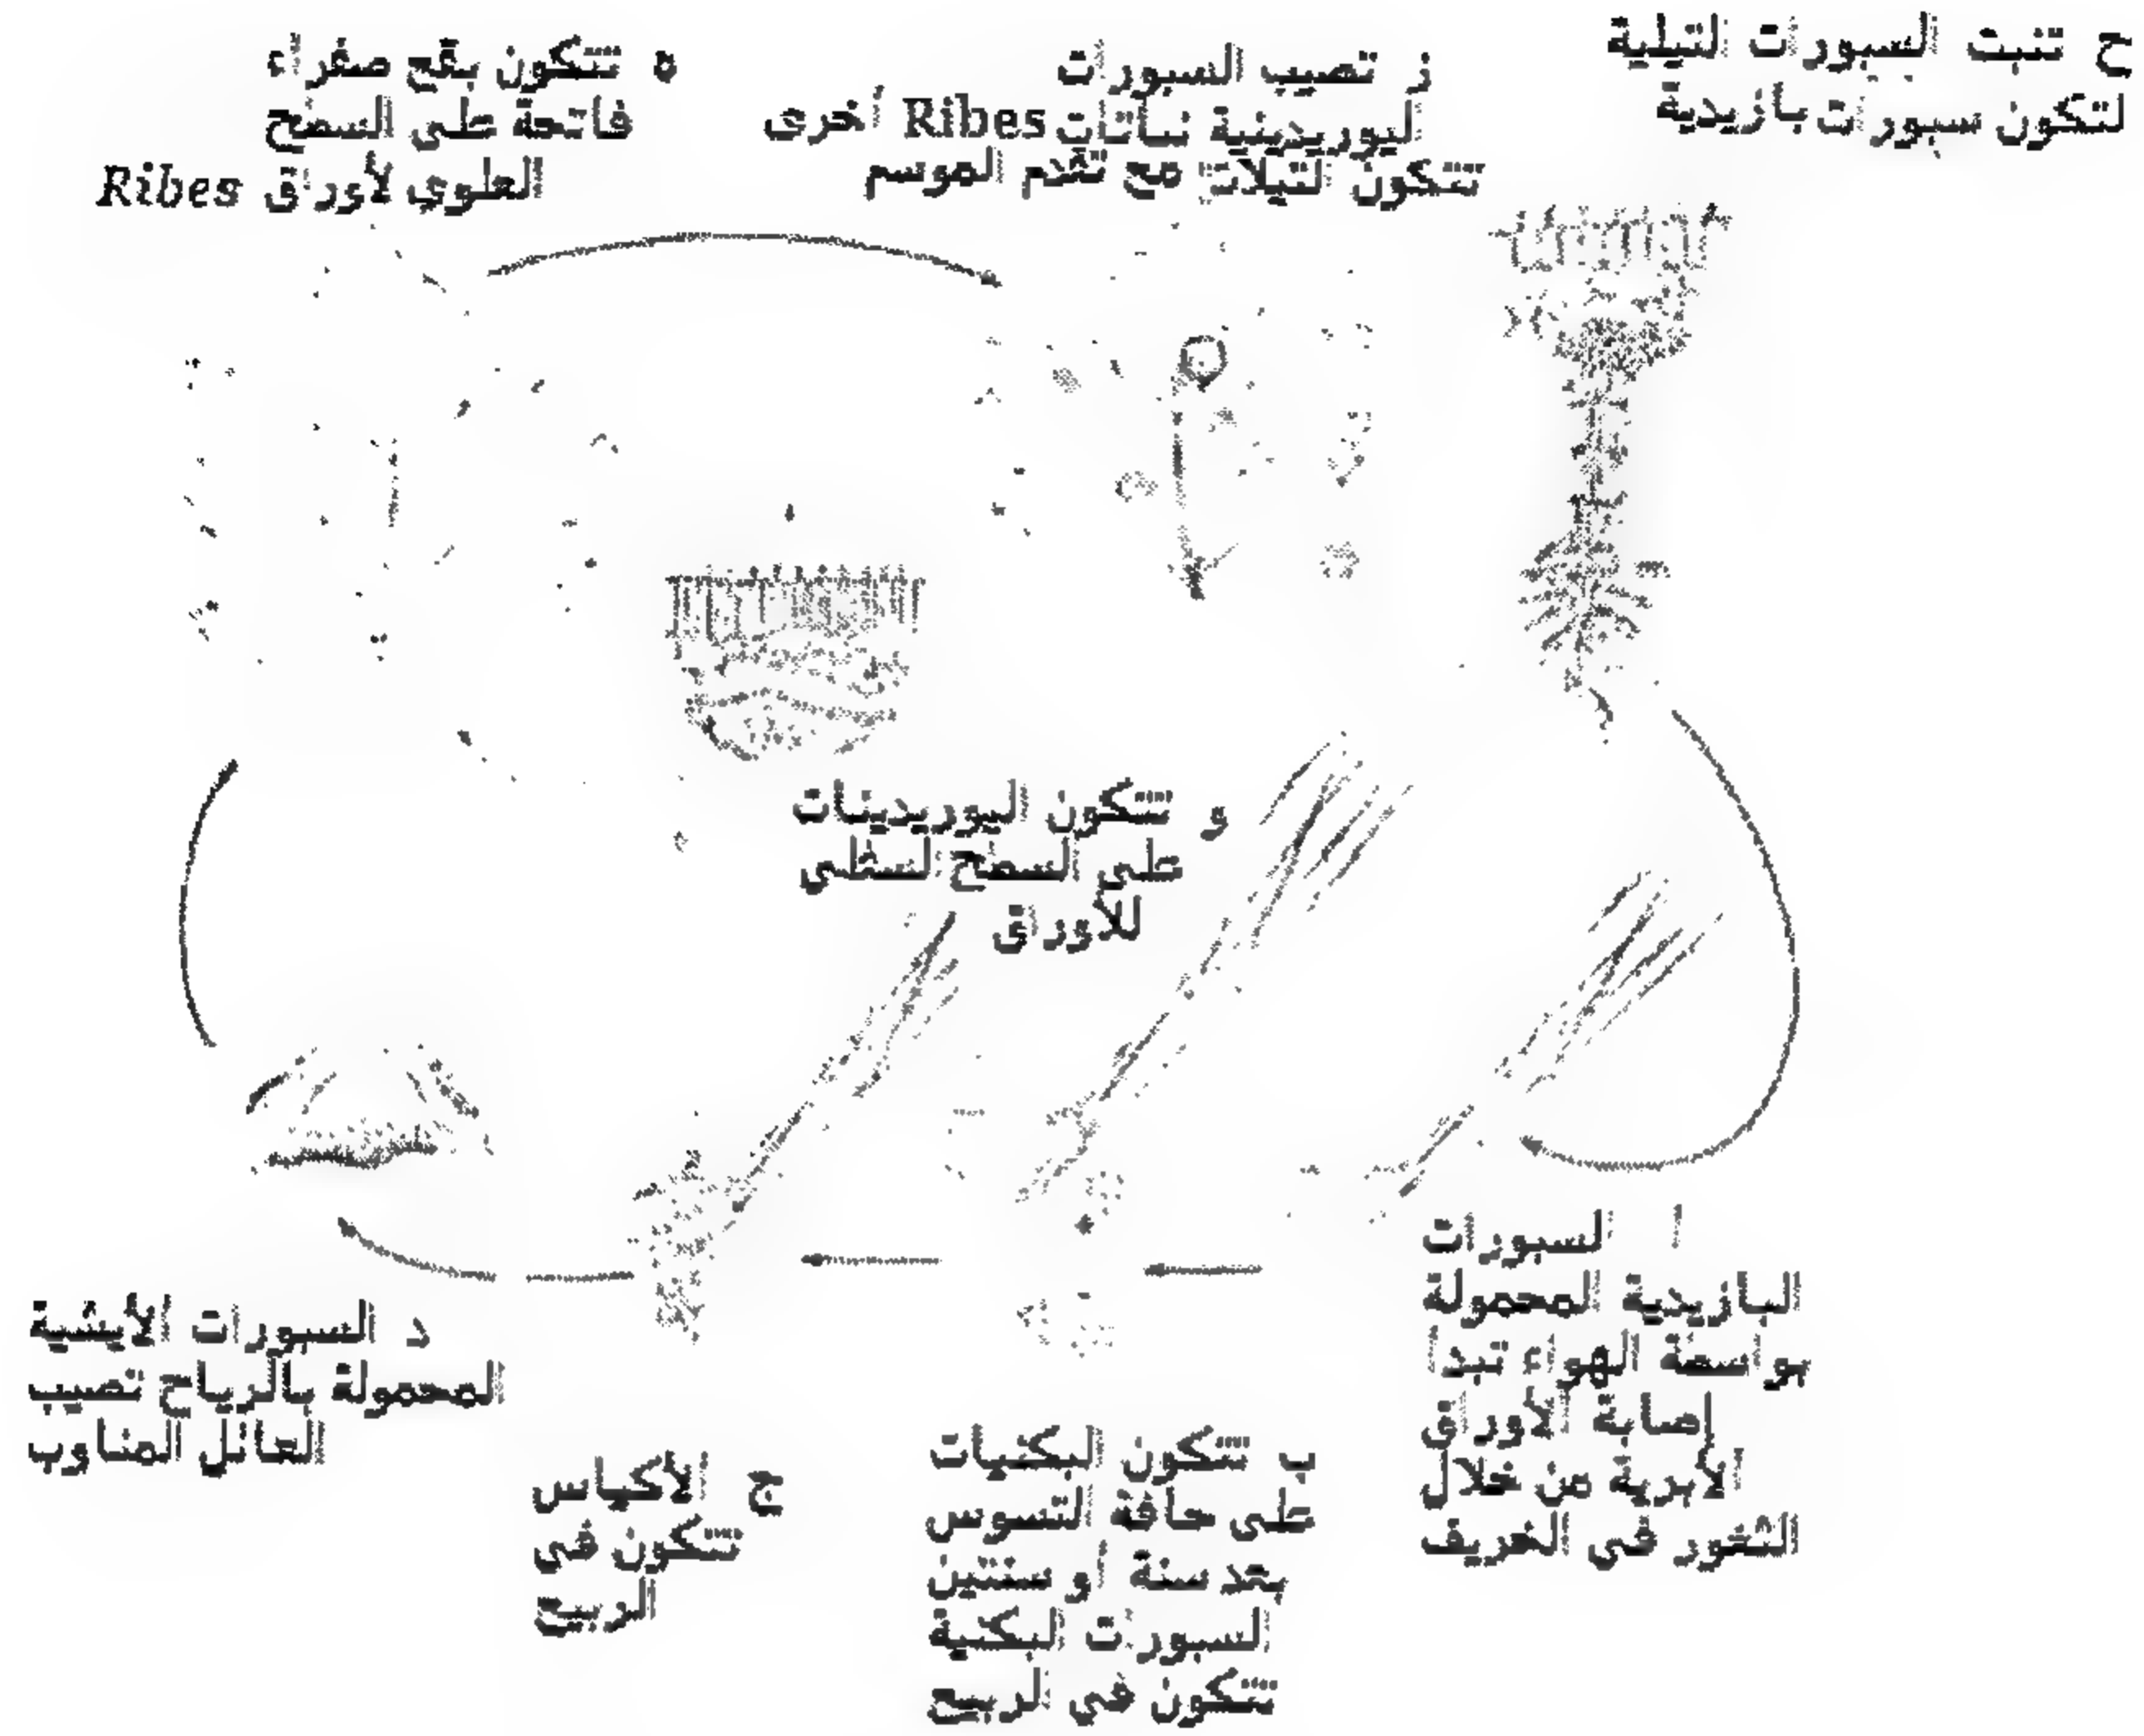 ح تنبت السبورات التيلية
لتكون سبورات بازيدية
ز تصيب السبورات
اليوريدينية نباتات Ribes أخرى
تتكون التيلات مع تقدم الموسم
ه تتكون بقع صفراء
فاتحة على السطح
العلوى لأوراق Ribes
و تتكون اليوريدينات
على السطح السفلى
للأوراق
ا السبورات
البازيدية المحمولة
بواسطة الهواء تبدأ
إصابة الأوراق
الأبرية من خلال
الثغور في الخريف
ب تتكون البكنيات
على حافة التسوس
بعد سنة أو سنتين
السبورات البكنية
تتكون في الربيع
ج الأكياس
تتكون في
الربيع
د السبورات الأيشية
المحمولة بالرياح تصيب
العائل المناوب